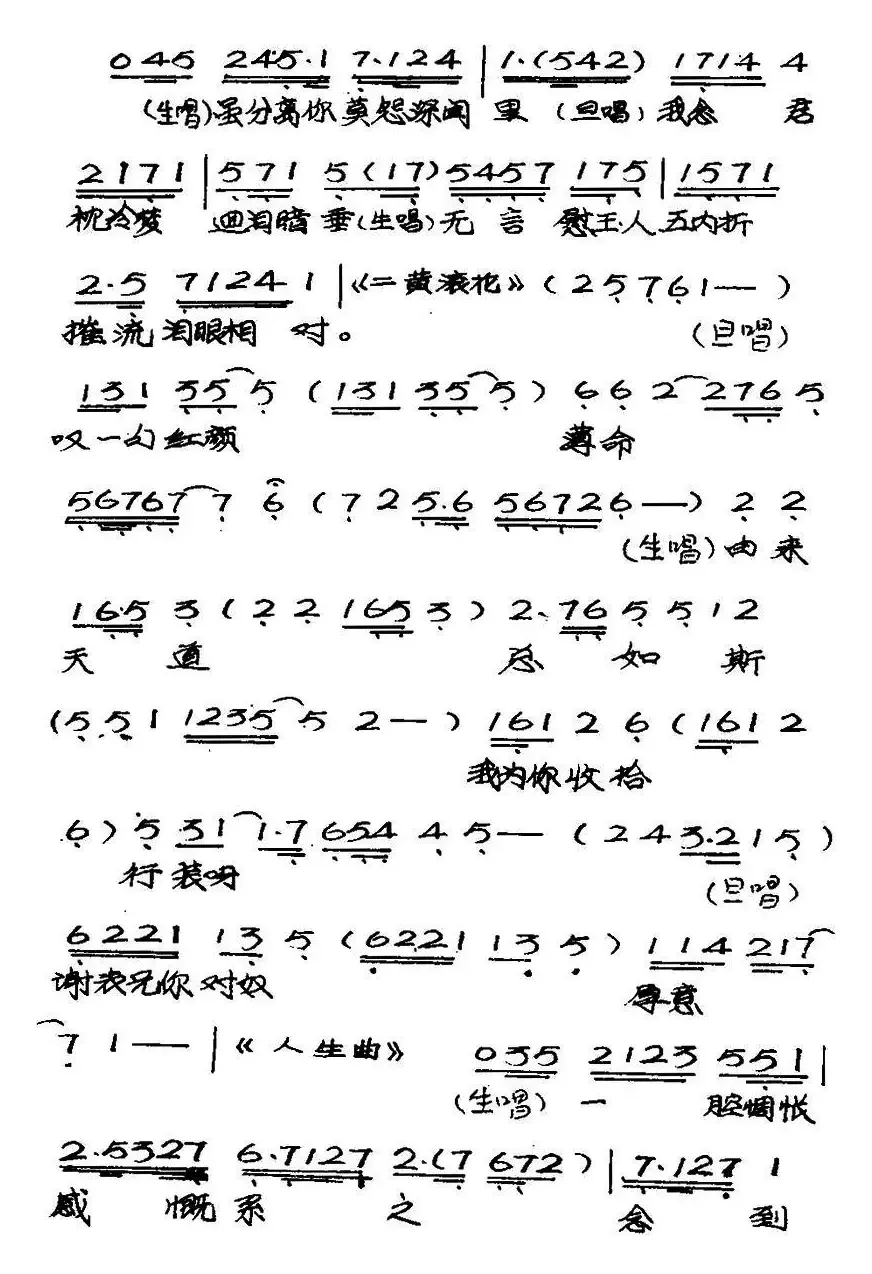 045 245·1 7·124 | 1·(542) 1714 4
(生唱)虽分离你莫怨深闺里(旦唱)我念君
2171 | 571 5(17)5457 175 | 1571
枕冷梦迴泪暗垂(生唱)无言慰玉人五内折
2·5 71241 |《二黄滚花》(25761——)
摧流泪眼相对。(旦唱)
131 355 5 (131 355 5) 6 6 2 2765
叹一句红颜薄命
56767 7 6 (7 2 5·6 567266——) 2 2
(生唱)由来
16·5 3 (2 2 165 3) 2·76 5 5 1 2
天道总如斯
(5 5 1 1235 5 2—) 161 2 6 (161 2
我为你收拾
6) 5 31 1·7 654 4 5— (2 4 3·2 1 5)
行装呀(旦唱)
6221 13 5 (6221 13 5) 114 217
谢表兄你对奴厚意
7 1—— |《人生曲》 035 2123 551 |
(生唱)一腔惆怅
2·5327 6·7127 2·(7 672) | 7·127 1
感慨系之念到